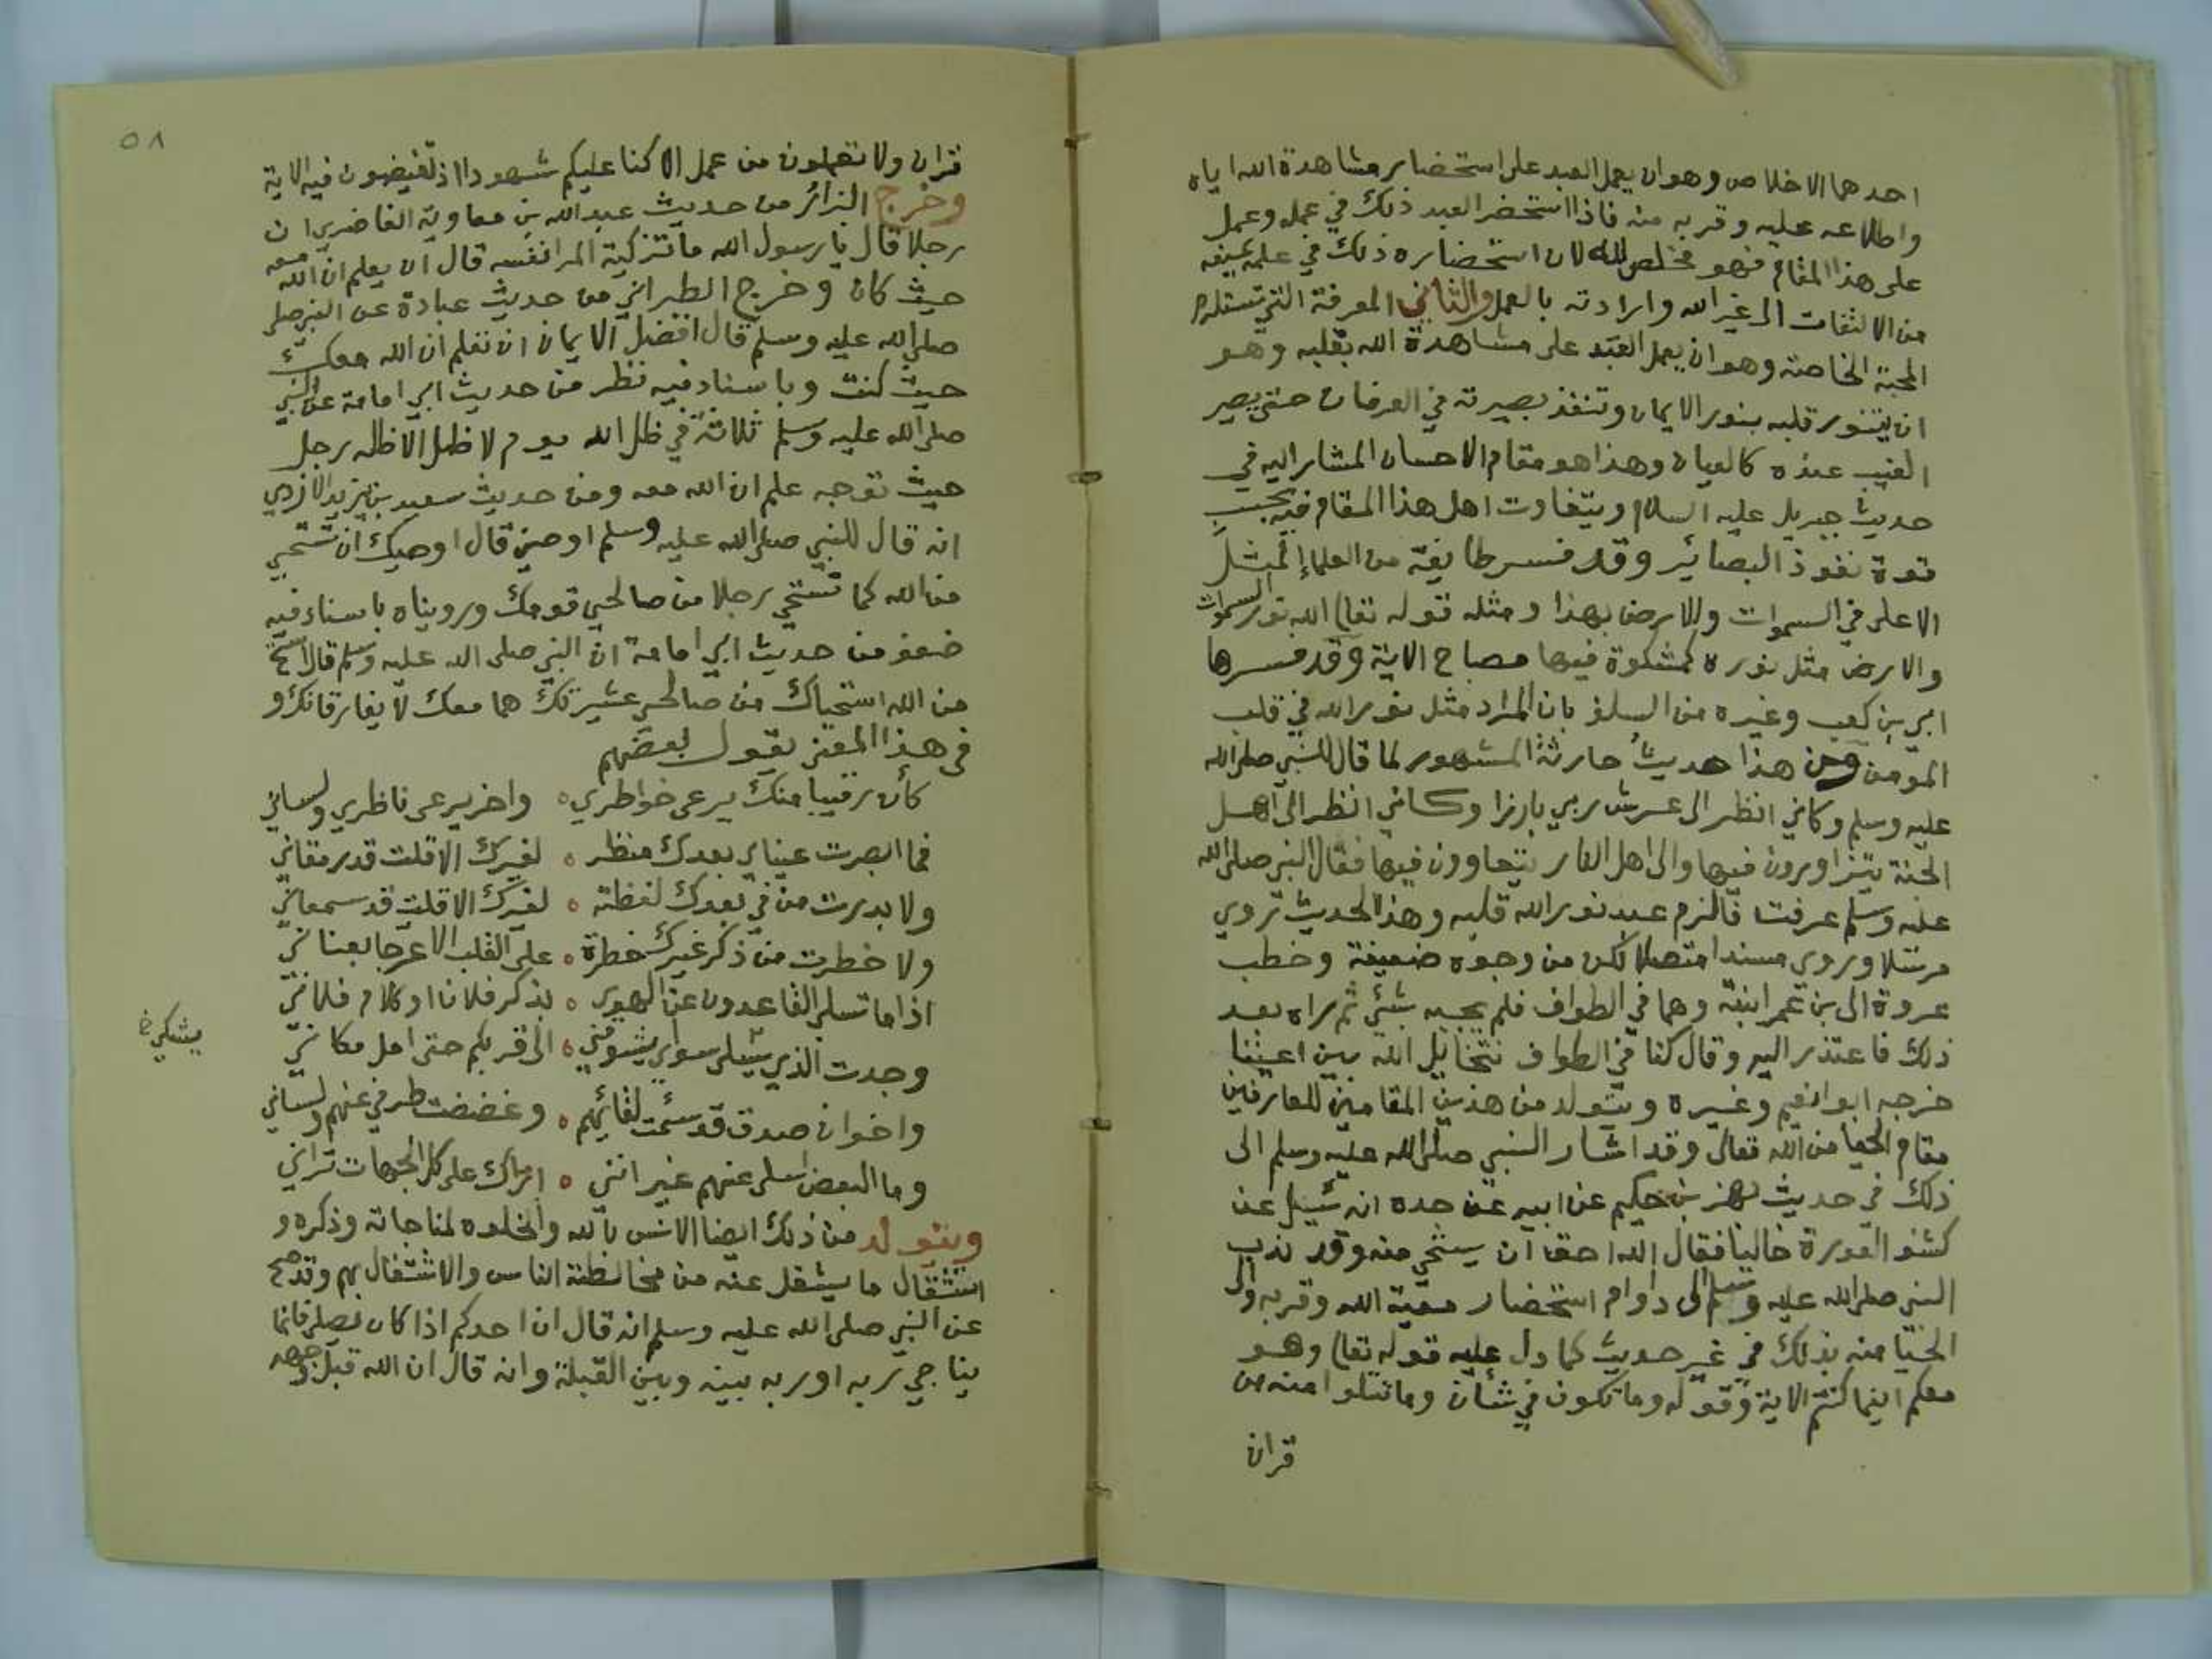 احدهما الاخلاص وهو ان يعمل العبد على استحضار مشاهدة الله اياه
واطلاعه عليه وقربه منه فاذا استحضر العبد ذلك في عمله وعمل
على هذا المقام فهو مخلص لله لان استحضاره ذلك في علمه يمنعه
من الالتفات الى غير الله وارادته بالعمل والثاني المعرفة التي تستلزم
المحبة الخاصة وهو ان يعمل العبد على مشاهدة الله بقلبه وهو
ان يتنور قلبه بنور الايمان وتنفذ بصيرته في العرفان حتى يصير
الغيب عنده كالعيان وهذا هو مقام الاحسان المشار اليه في
حديث جبريل عليه السلام ويتفاوت اهل هذا المقام فيه بحسب
قوة نفوذ البصائر وقد فسر طايفة من العلماء المثل
الاعلى في السموات والارض بهذا ومثله قوله تعالى الله نور السموات
والارض مثل نوره كمشكوة فيها مصباح الاية وقد فسرها
ابي بن كعب وغيره من السلف بان المراد مثل نور الله في قلب
المومن ومن هذا حديث حارثة المشهور لما قال للنبي صلى الله
عليه وسلم وكاني انظر الى عرش ربي بارزا وكاني انظر الى اهل
الجنة يتزاورون فيها والى اهل النار يتعاوون فيها فقال النبي صلى الله
عليه وسلم عرفت فالزم عبد نور الله قلبه وهذا الحديث تروي
مرسلا وروي مسندا متصلا لكن من وجوه ضعيفة وخطب
عروة الى بن عمر ابنته وهما في الطواف فلم يجبه بشئ ثم راه بعد
ذلك فاعتذر اليه وقال كنا في الطواف نتخايل الله بين اعيننا
خرجه ابوا نعيم وغيره ويتولد من هذين المقامين للعارفين
مقام الحيا من الله تعالى وقد اشار النبي صلى الله عليه وسلم الى
ذلك في حديث بهز بن حكيم عن ابيه عن جده انه سئيل عن
كشف العورة خاليا فقال الله احق ان يستحي منه وقد ندب
النبي صلى الله عليه وسلم الى دوام استحضار معية الله وقربه والى
الحيا منه بذلك في غير حديث كما دل عليه قوله تعالى وهو
معكم اينما كنتم الاية وقوله وما تكون في شأن وما تتلوا منه من
قران
٥٨
قران ولا تعملون من عمل الا كنا عليكم شهودا اذ تفيضون فيه الاية
وخرج البزائر من حديث عبد الله بن معاوية الغاضري ان
رجلا قال يا رسول الله ما تزكية المرا نفسه قال ان يعلم ان الله معه
حيث كان وخرج الطبراني من حديث عبادة عن النبي صلى
صلى الله عليه وسلم قال افضل الايمان ان تعلم ان الله معك
حيث كنت وباسناد فيه نظر من حديث ابي امامة عن النبي
صلى الله عليه وسلم ثلاثة في ظل الله يوم لا ظل الا ظله رجل
حيث توجه علم ان الله معه ومن حديث سعيد بن يزيد الازدي
انه قال للنبي صلى الله عليه وسلم اوصني قال اوصيك ان تستحي
من الله كما تستحي رجلا من صالحي قومك ورويناه باسناد فيه
ضعف من حديث ابي امامة ان النبي صلى الله عليه وسلم قال استح
من الله استحياك من صالحي عشيرتك هما معك لا يفارقانك و
في هذا المعنى يقول بعضهم
كأن رقيبا منك يرعى خواطري ٥ واخر يرعى ناظري ولساني
فما ابصرت عيناي بعدك منظر ٥ لغيرك الا قلت قد رمقاني
ولا بدرت من في بعدك لفظة ٥ لغيرك الا قلت قد سمعاني
ولا خطرت من ذكر غيرك خطرة ٥ على القلب الا عرجا بعناني
اذا ما تسلى القاعدون عن الهوى ٥ بذكر فلان او كلام فلاني
وجدت الذي يسلى سواي يشوقني ٥ الى قربكم حتى امل مكاني
واخوان صدق قد سئمت لقائهم ٥ وغضضت طرفي عنهم ولساني
وما البعض اسلى عنهم غير انني ٥ اراك على كل الجهات تراني
ويتولد من ذلك ايضا الانس بالله والخلوه لمناجاته وذكره و
استثقال ما يشغل عنه من مخالطة الناس والاشتغال بهم وقد صح
عن النبي صلى الله عليه وسلم انه قال ان احدكم اذا كان يصلي فانما
يناجي ربه او ربه بينه وبين القبلة وانه قال ان الله قبل وجهه